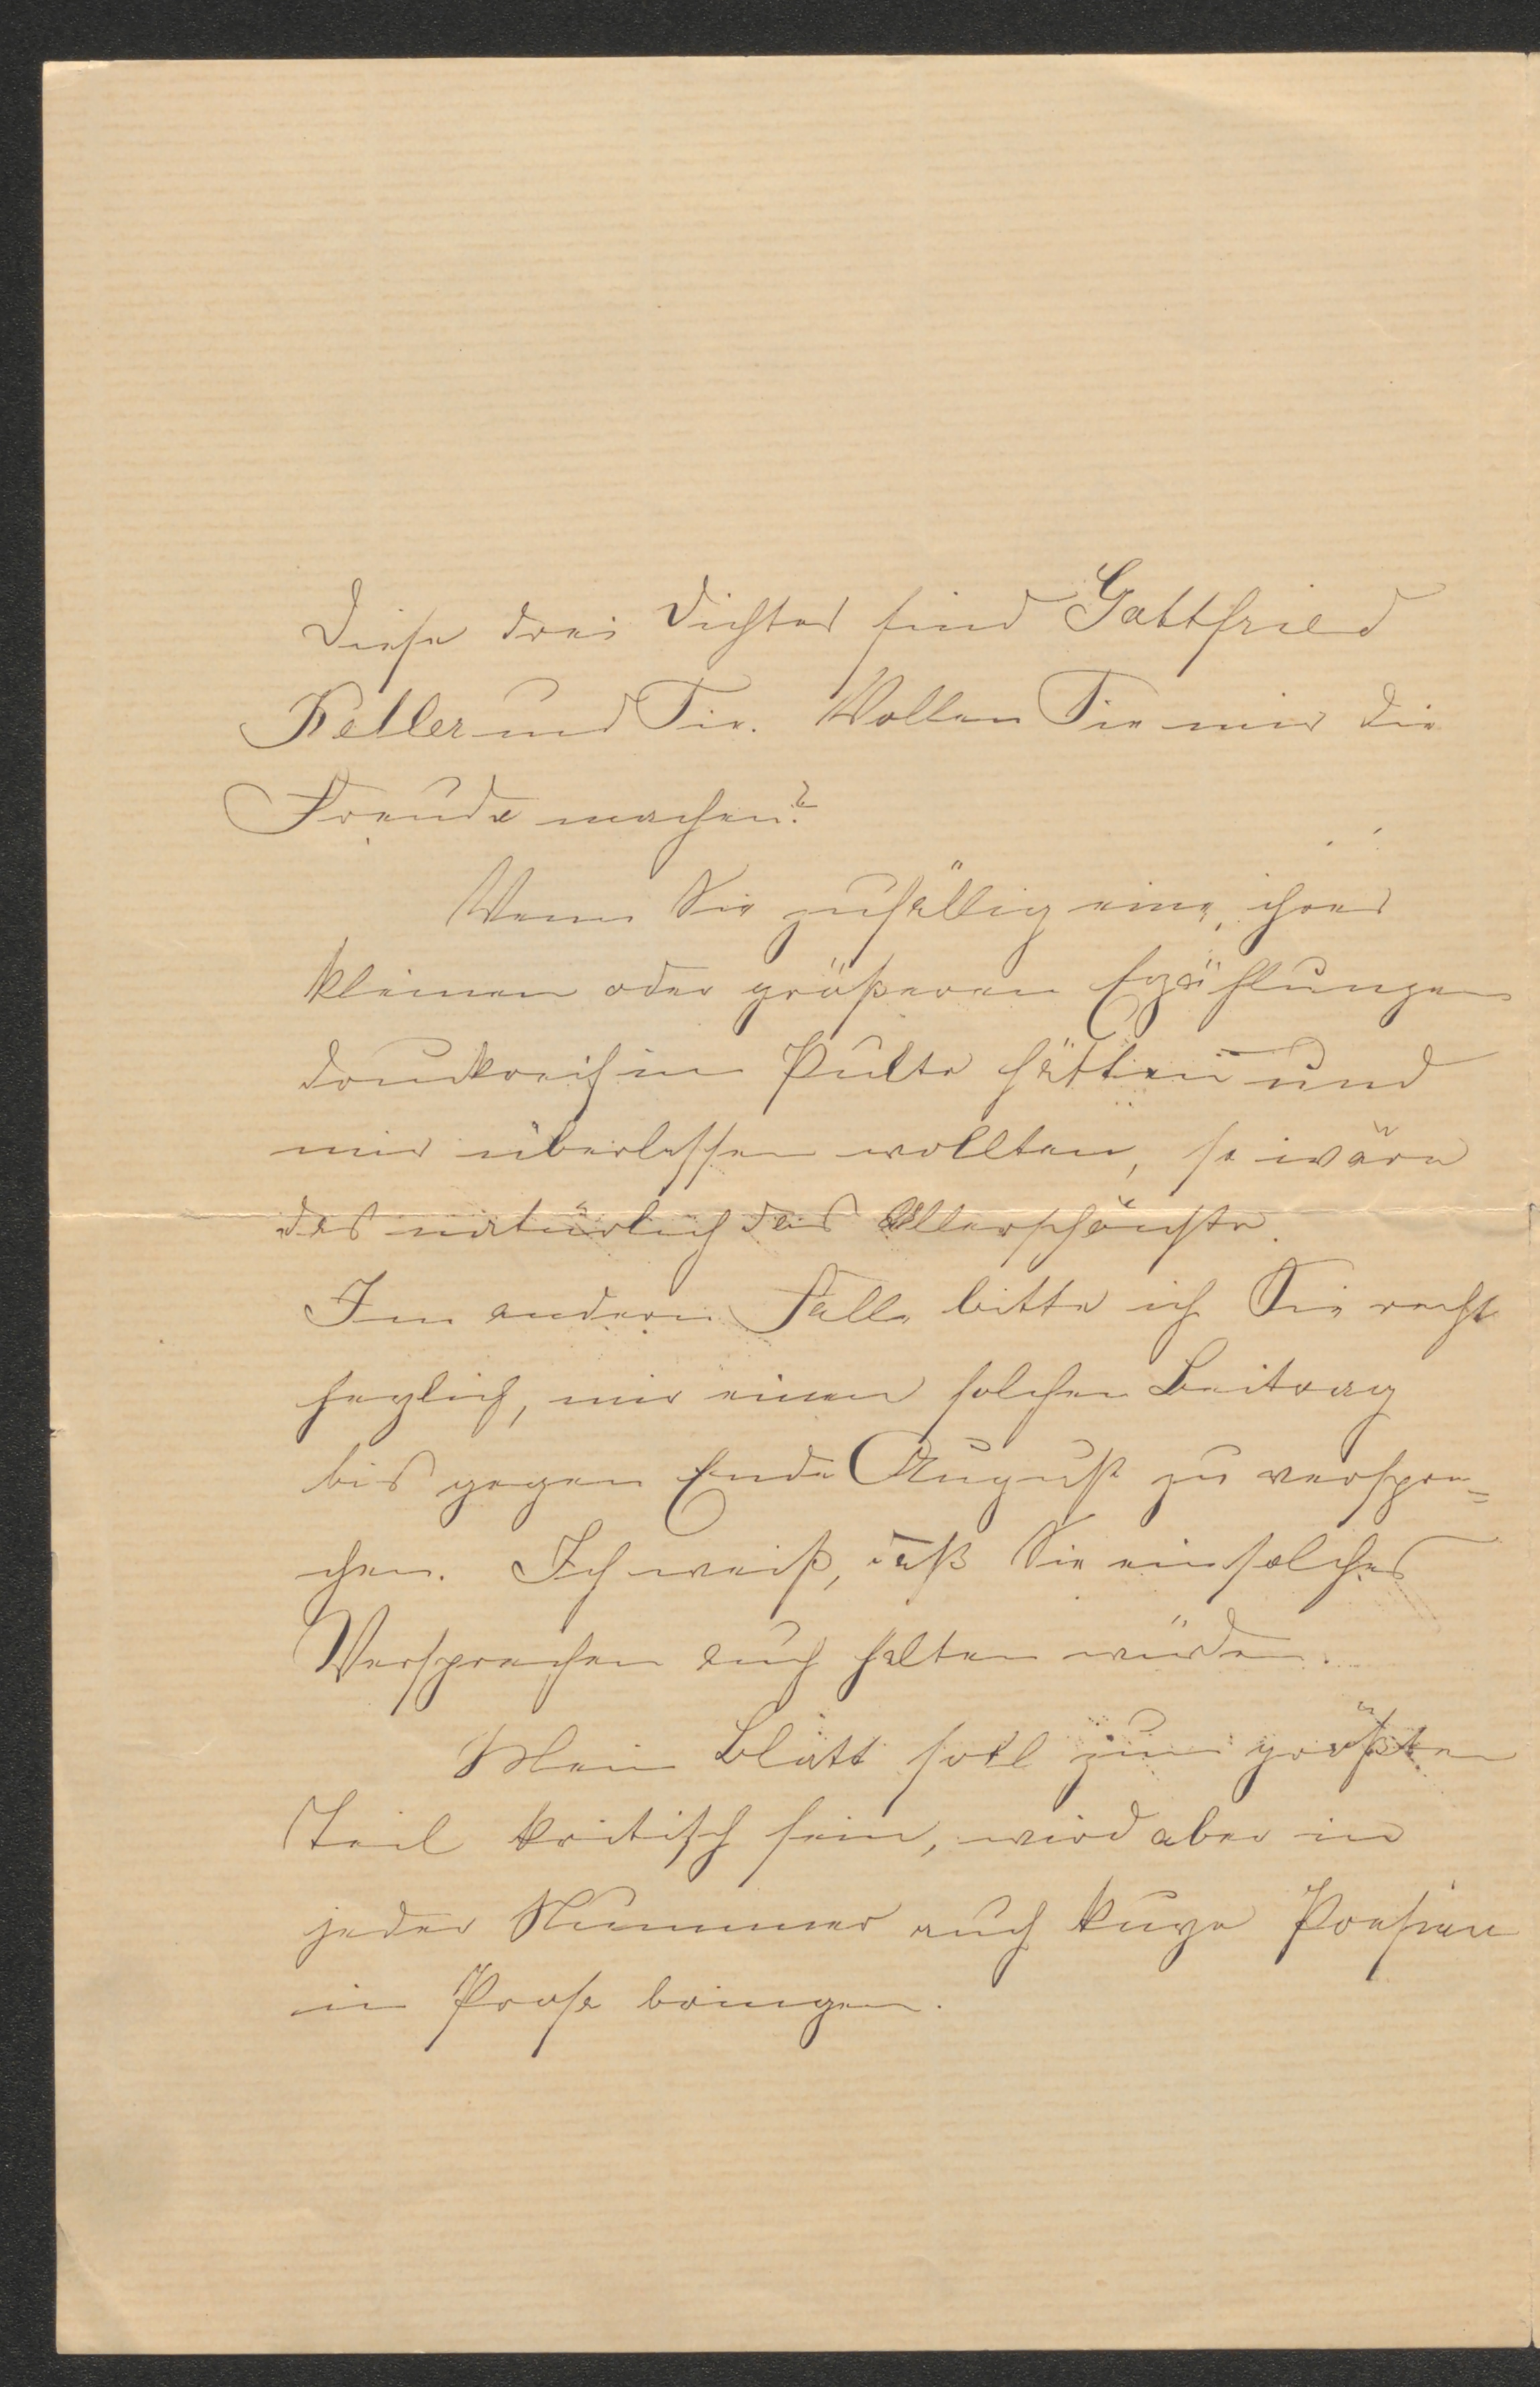 Diese drei Dichter sind Gottfried
Keller und Sie. Wollen Sie mir die
Freude machen?
Wenn Sie zufällig eine ihrer
kleinen oder größeren Erzählungen
druckreif im Pulte hätten und
mir überlassen wollten, so wäre
das natürlich das Allerschönste.
Im andern Falle bitte ich Sie recht
herzlich, mir einen solchen Beitrag
bis gegen Ende August zu verspre=
chen. Ich weiß, daß Sie ein solches
Versprechen auch halten würden.
Mein Blatt soll zum größten
Teil kritisch sein, wird aber in
jeder Nummer auch kurze Poesieen
in Prosa bringen.